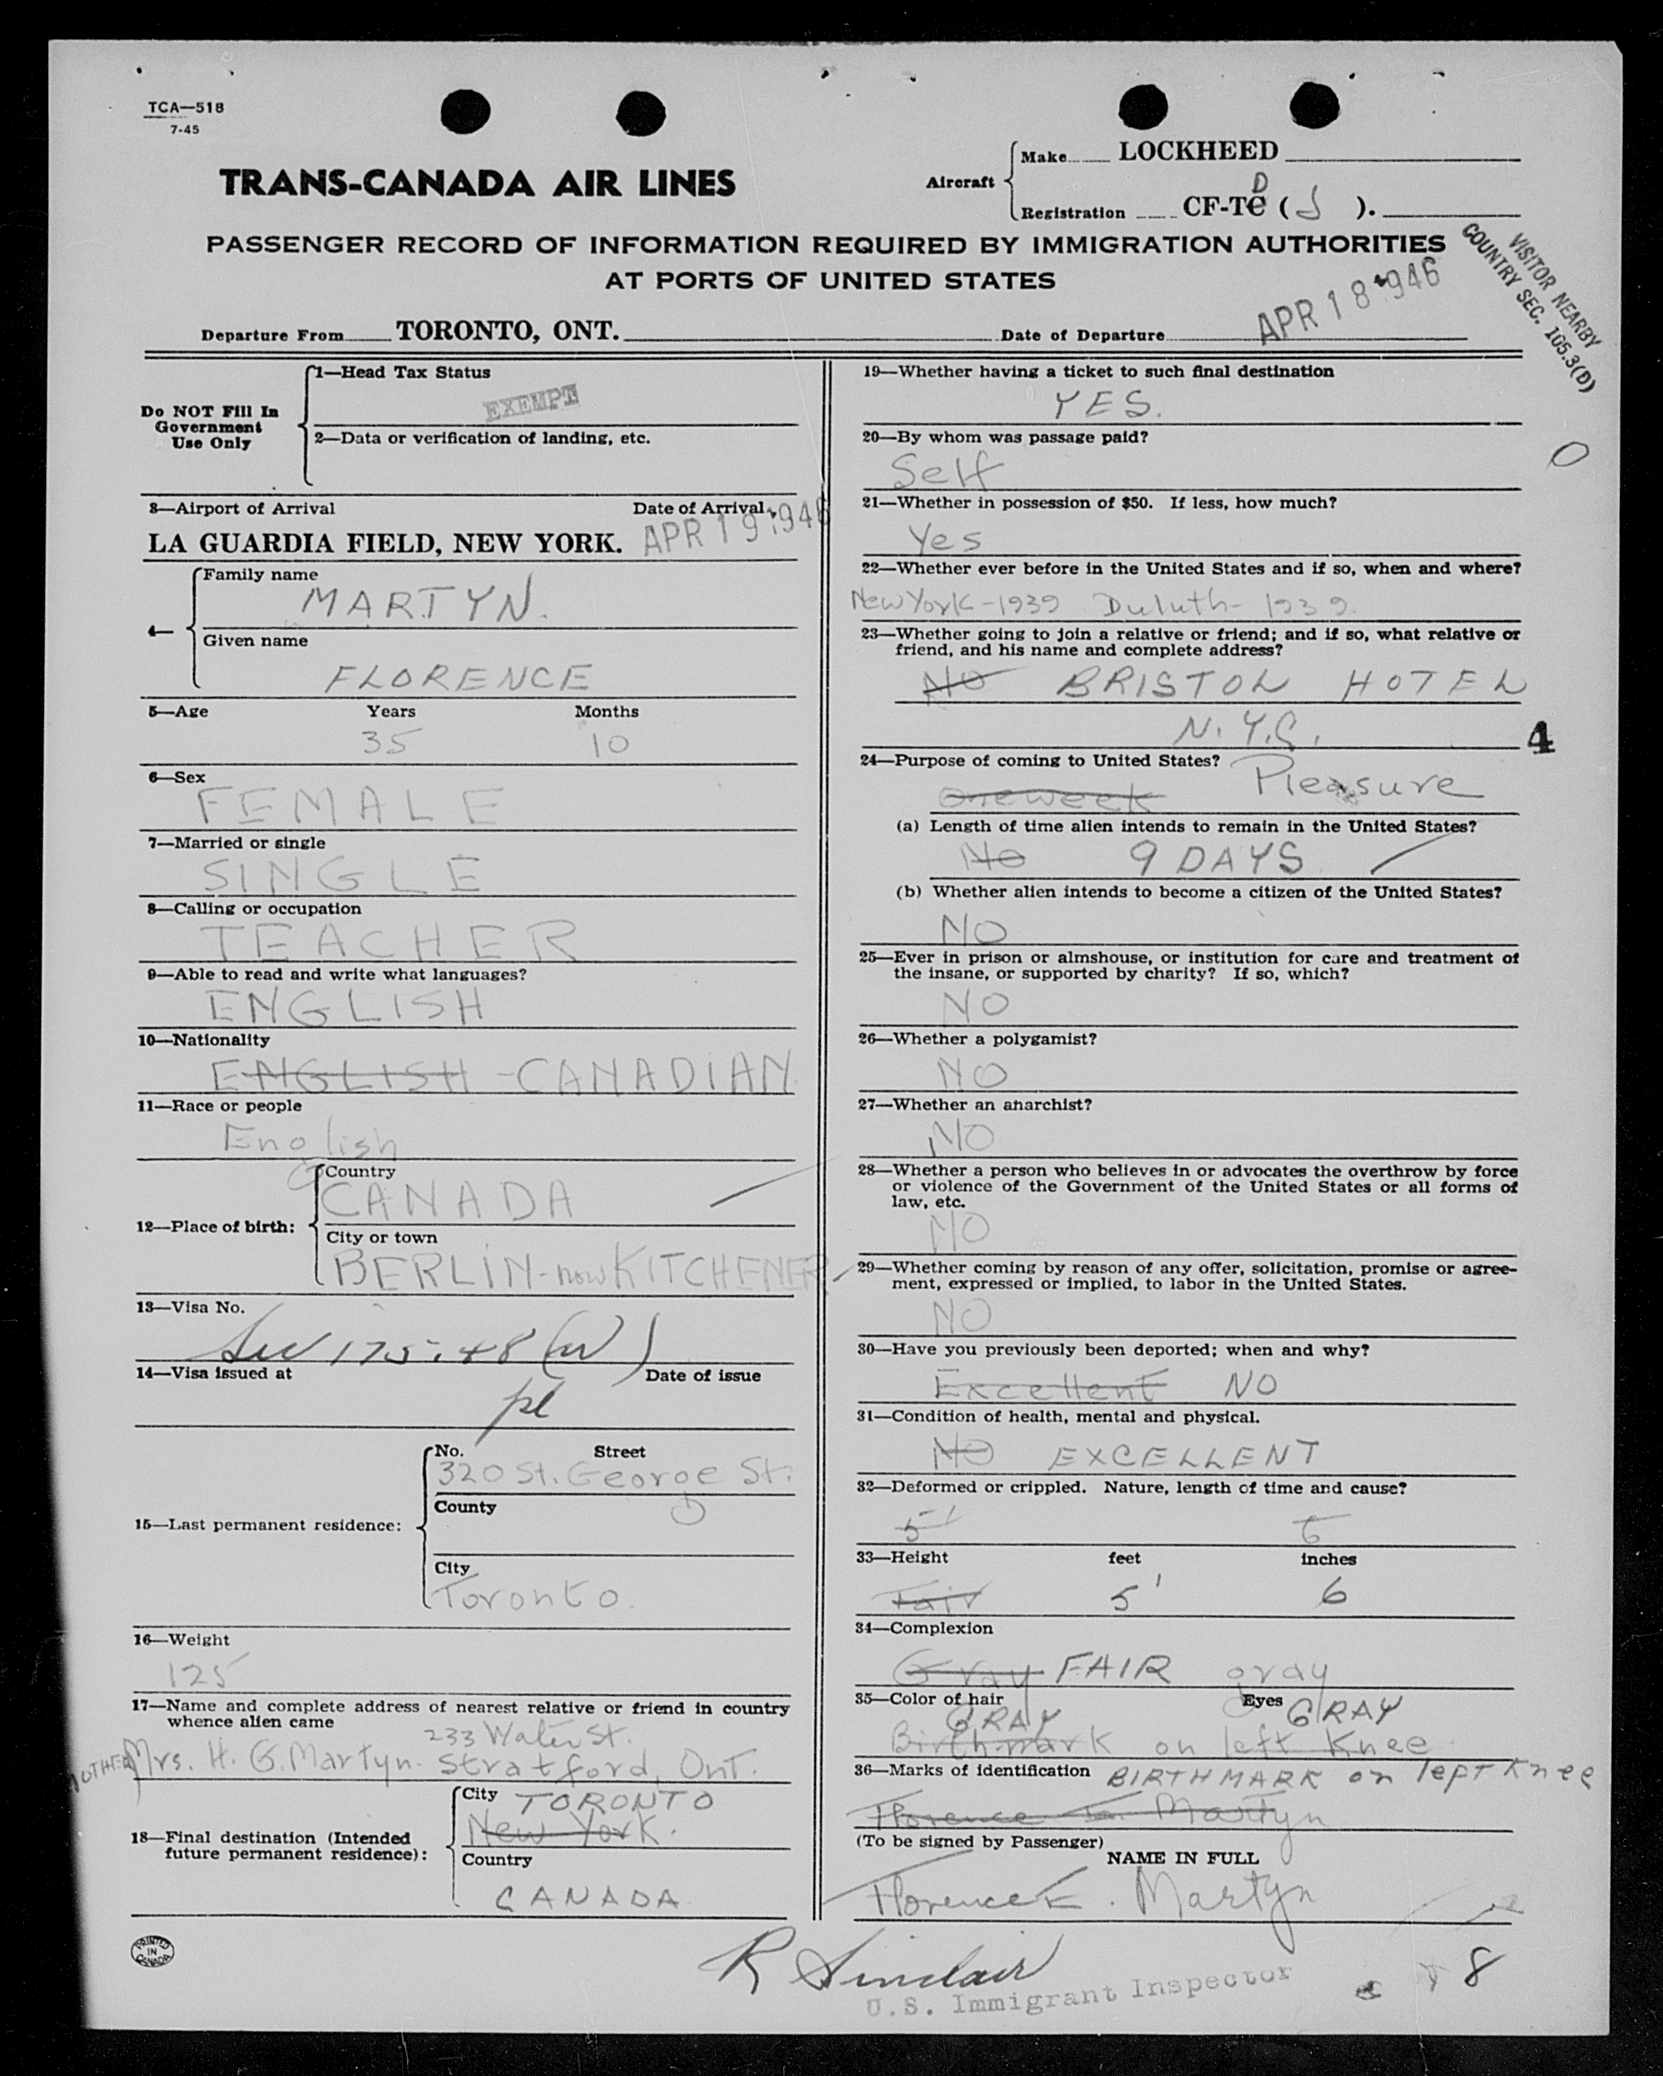 TCA—518
7-45
TRANS-CANADA AIR LINES
Aircraft
Make LOCKHEED
Registration CF-TC D ( J ).
PASSENGER RECORD OF INFORMATION REQUIRED BY IMMIGRATION AUTHORITIES
AT PORTS OF UNITED STATES
VISITOR NEARBY
COUNTRY SEC. 105.3(D)
Departure From TORONTO, ONT. Date of Departure APR 18 1946
Do NOT Fill In
Government
Use Only
1—Head Tax Status
EXEMPT
2—Data or verification of landing, etc.
3—Airport of Arrival Date of Arrival
LA GUARDIA FIELD, NEW YORK. APR 19 1946
4—
Family name
MARTYN.
Given name
FLORENCE
5—Age Years Months
35 10
6—Sex
FEMALE
7—Married or single
SINGLE
8—Calling or occupation
TEACHER
9—Able to read and write what languages?
ENGLISH
10—Nationality
ENGLISH - CANADIAN
11—Race or people
English
12—Place of birth:
Country
CANADA
City or town
BERLIN - now KITCHENER
13—Visa No.
175.48 (W)
14—Visa issued at Date of issue
pl
15—Last permanent residence:
No. Street
320 St. George St.
County
City
Toronto.
16—Weight
125
17—Name and complete address of nearest relative or friend in country
whence alien came
233 Water St.
MOTHER Mrs. H. G. Martyn. Stratford, Ont.
18—Final destination (Intended
future permanent residence):
City TORONTO
New York.
Country
CANADA
PRINTED
IN
CANADA
19—Whether having a ticket to such final destination
YES.
20—By whom was passage paid?
Self
0
21—Whether in possession of $50. If less, how much?
Yes
22—Whether ever before in the United States and if so, when and where?
New York - 1939 Duluth - 1939.
23—Whether going to join a relative or friend; and if so, what relative or
friend, and his name and complete address?
No BRISTOL HOTEL
N.Y.C.
4
24—Purpose of coming to United States?
One week Pleasure
(a) Length of time alien intends to remain in the United States?
No 9 DAYS
(b) Whether alien intends to become a citizen of the United States?
NO
25—Ever in prison or almshouse, or institution for care and treatment of
the insane, or supported by charity? If so, which?
NO
26—Whether a polygamist?
NO
27—Whether an anarchist?
NO
28—Whether a person who believes in or advocates the overthrow by force
or violence of the Government of the United States or all forms of
law, etc.
NO
29—Whether coming by reason of any offer, solicitation, promise or agree-
ment, expressed or implied, to labor in the United States.
NO
30—Have you previously been deported; when and why?
Excellent NO
31—Condition of health, mental and physical.
NO EXCELLENT
32—Deformed or crippled. Nature, length of time and cause?
5' 6
33—Height feet inches
Fair 5' 6
34—Complexion
Gray FAIR gray
35—Color of hair Eyes
GRAY GRAY
Birthmark on left knee
36—Marks of identification BIRTHMARK on left Knee
Florence E. Martyn
(To be signed by Passenger)
NAME IN FULL
Florence E. Martyn
R Sinclair
U.S. Immigrant Inspector
8